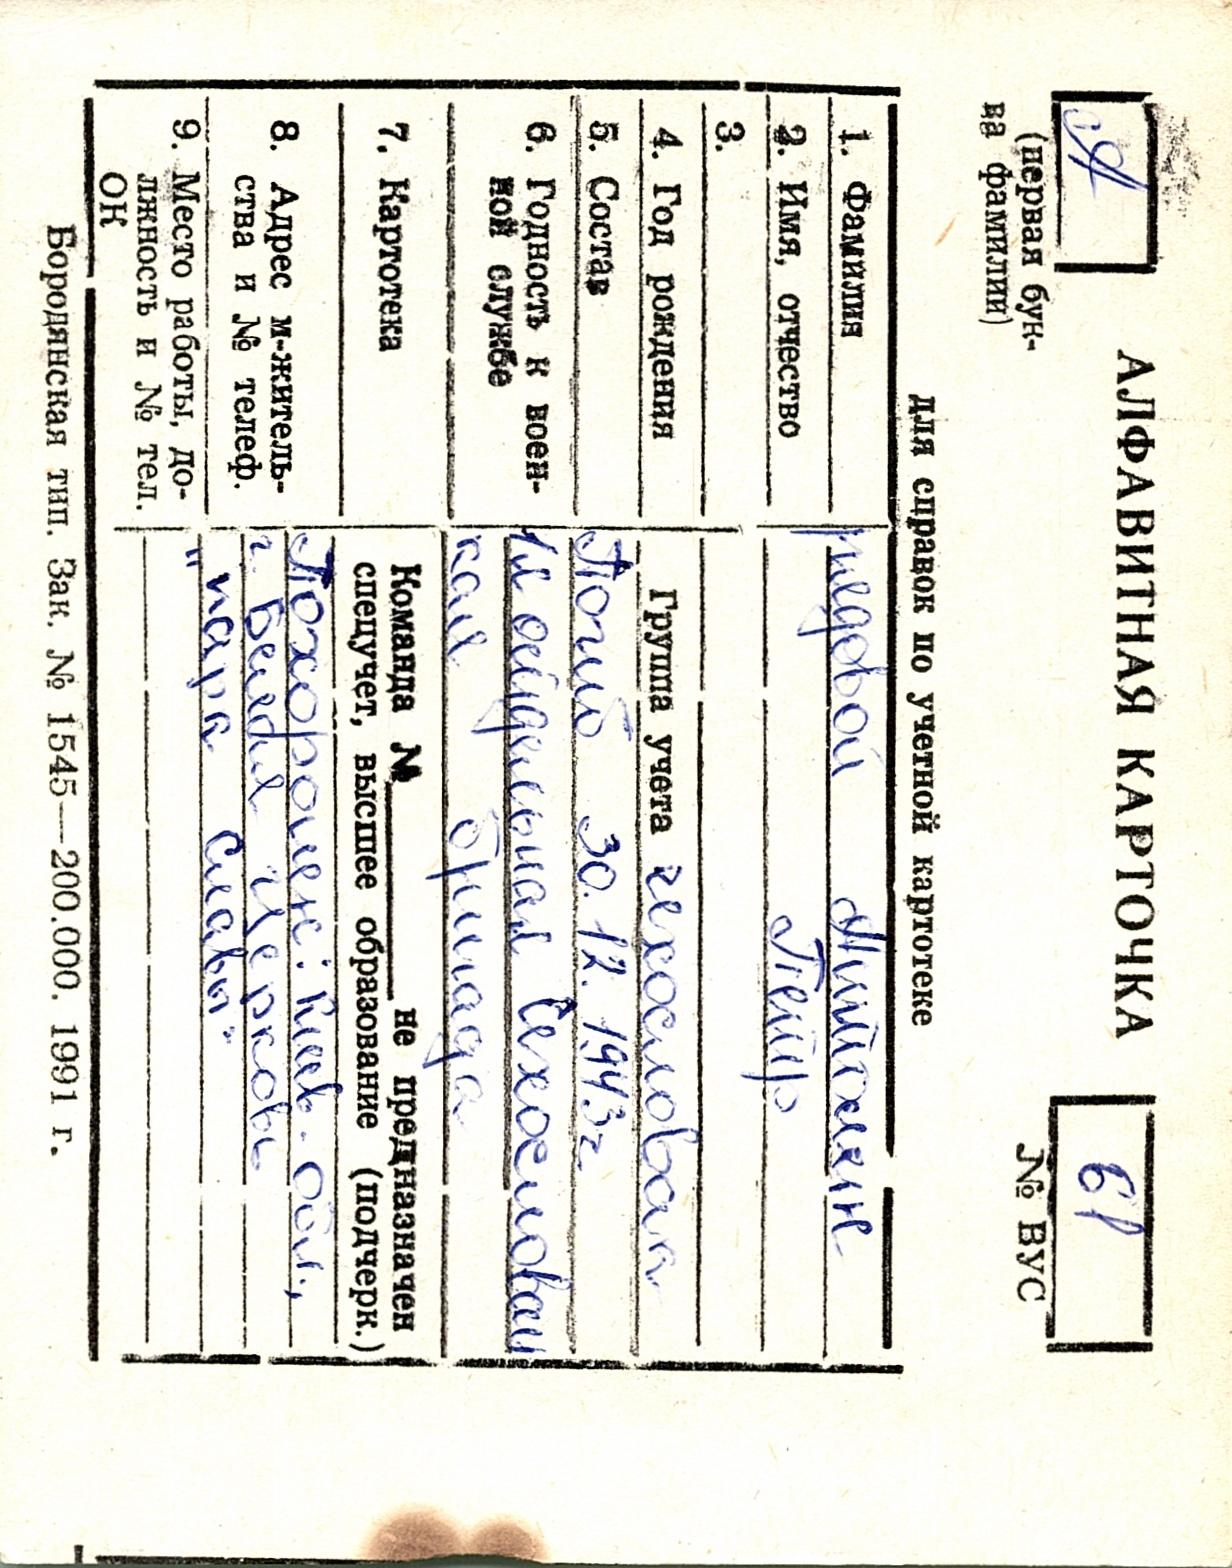 А
(первая бук-
ва фамилии)
АЛФАВИТНАЯ КАРТОЧКА
для справок по учетной картотеке
№ ВУС
1. Фамилия рядовой
2. Имя, отчество Петр
3.
4. Год рождения Группа учета
5. Состав Погиб 30.12.1943 г.
6. Годность к воен-
ной службе кая бригада
7. Картотека Команда № не предназначен
спецучет, высшее образование (подчерк.)
8. Адрес м-житель-
ства и № телеф.
Похоронен: Киев. обл.,
г. Белая Церковь
9. Место работы, до-
лжность и № тел.
ОК
"парк Славы"
Бородянская тип. Зак. № 1545—200.000. 1991 г.